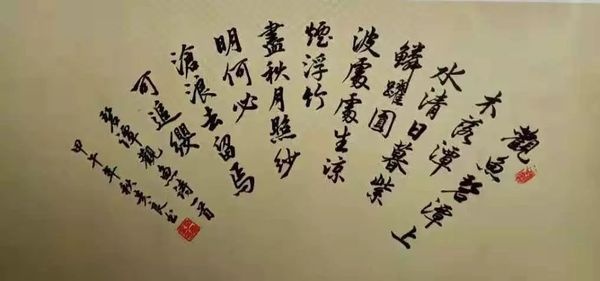 觀魚碧潭上
木落潭
水清日暮紫
鱗躍圓
波處處生涼
煙浮竹
盡秋月照紗
明何必
滄浪去留焉
可追纓
碧潭觀魚詩一首
甲午年秋書